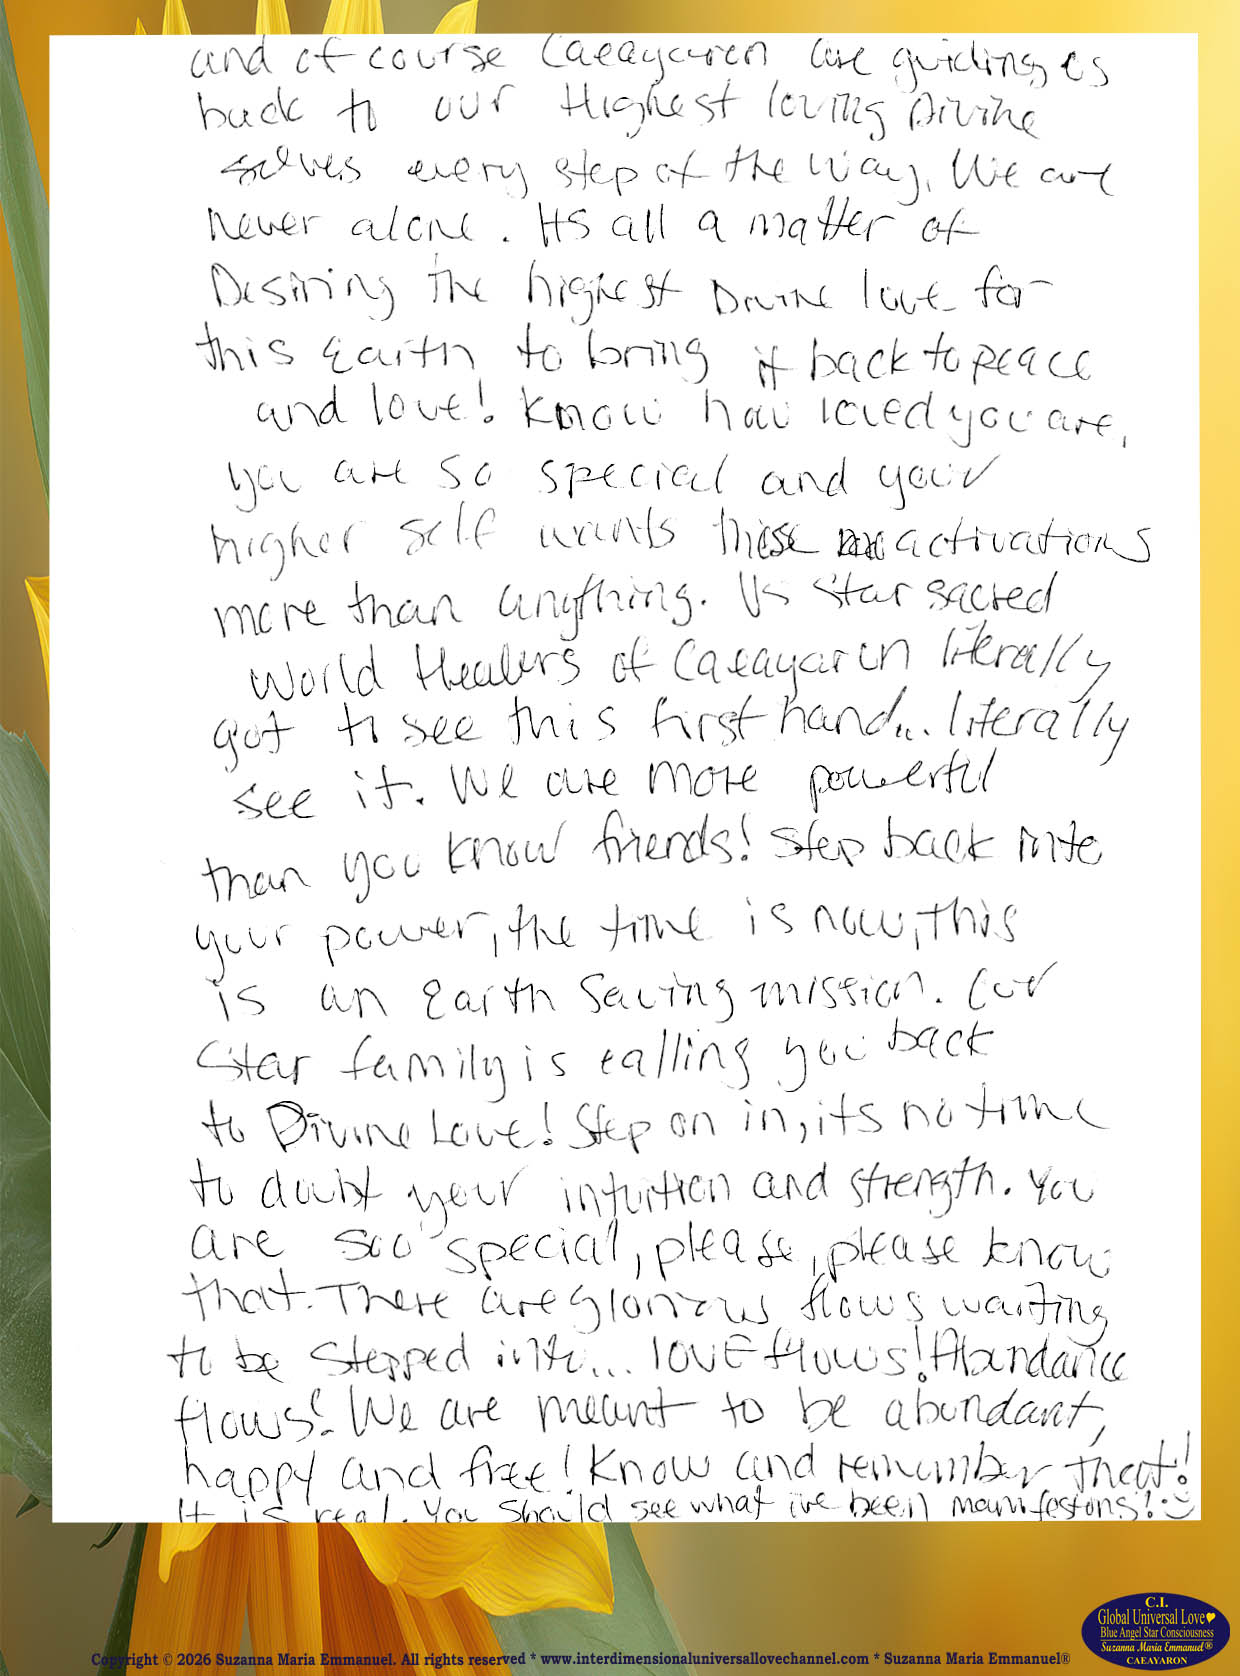 and of course Caeayaron are guiding us
back to our Highest loving Divine
selves every step of the way. We are
never alone. Its all a matter of
Desiring the highest Divine love for
this Earth to bring it back to peace
and love! Know how loved you are,
you are so special and your
higher self wants these activations
more than anything. Us Star sacred
World Healers of Caeayaron literally
got to see this first hand... literally
see it. We are more powerful
than you know friends! Step back into
your power, the time is now, this
is an Earth Saving mission. Our
Star family is calling you back
to Divine Love! Step on in, its no time
to doubt your intuition and strength. You
are soo special, please, please know
that. There are glorious flows waiting
to be stepped into... love flows! Abundance
flows! We are meant to be abundant,
happy and free! Know and remember that!
It is real. You should see what ive been manifestons! :)
C.I.
Global Universal Love
Blue Angel Star Consciousness
Suzanna Maria Emmanuel®
CAEAYARON
Copyright © 2026 Suzanna Maria Emmanuel. All rights reserved * www.interdimensionaluniversallovechannel.com * Suzanna Maria Emmanuel®